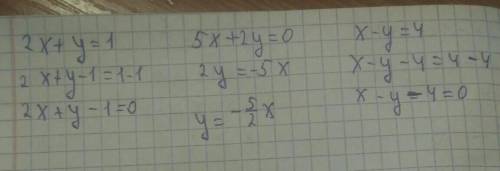 2x+y=1
2x+y-1=1-1
2x+y-1=0
5x+2y=0
2y=-5x
y=-5/2x
x-y=4
x-y-4=4-4
x-y-4=0